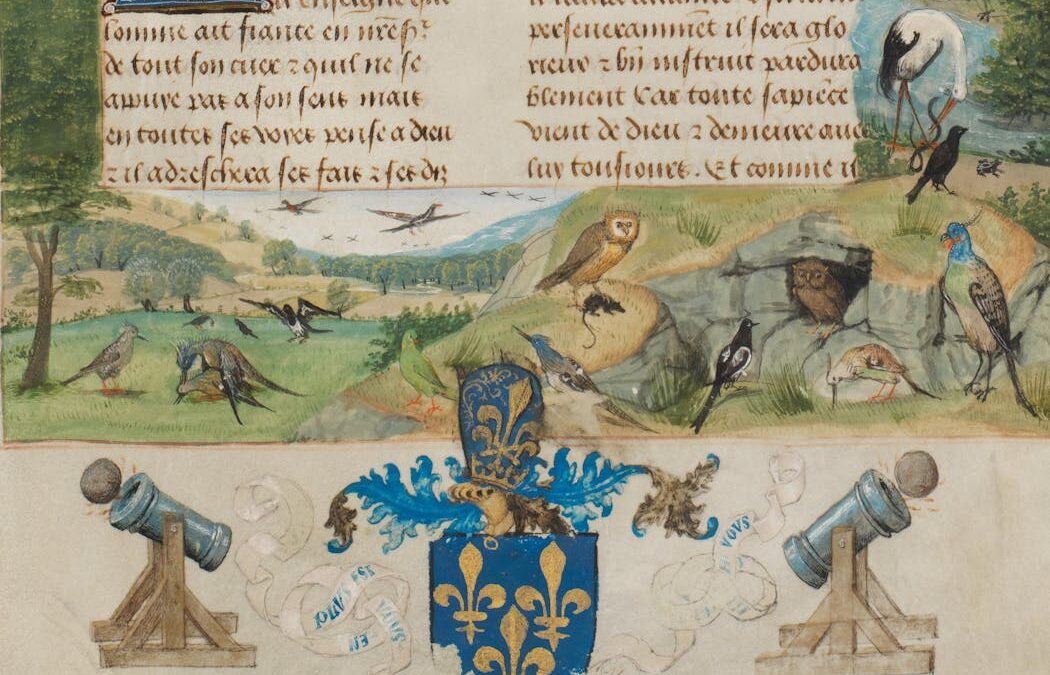 enseigne que
lomme ait fiance en nr̄e sr̄
de tout son cuer ⁊ quil ne se
appuye pas a son sens mais
en toutes ses voyes pense a dieu
⁊ il adreschera ses fais ⁊ ses diz
perseveramment il sera glo
rieux ⁊ bn̄ instruit pardura
blement Car toute sapiēce
vient de dieu ⁊ demeure auec
luy tousiours. Et comme il
EST
EN
VOUS